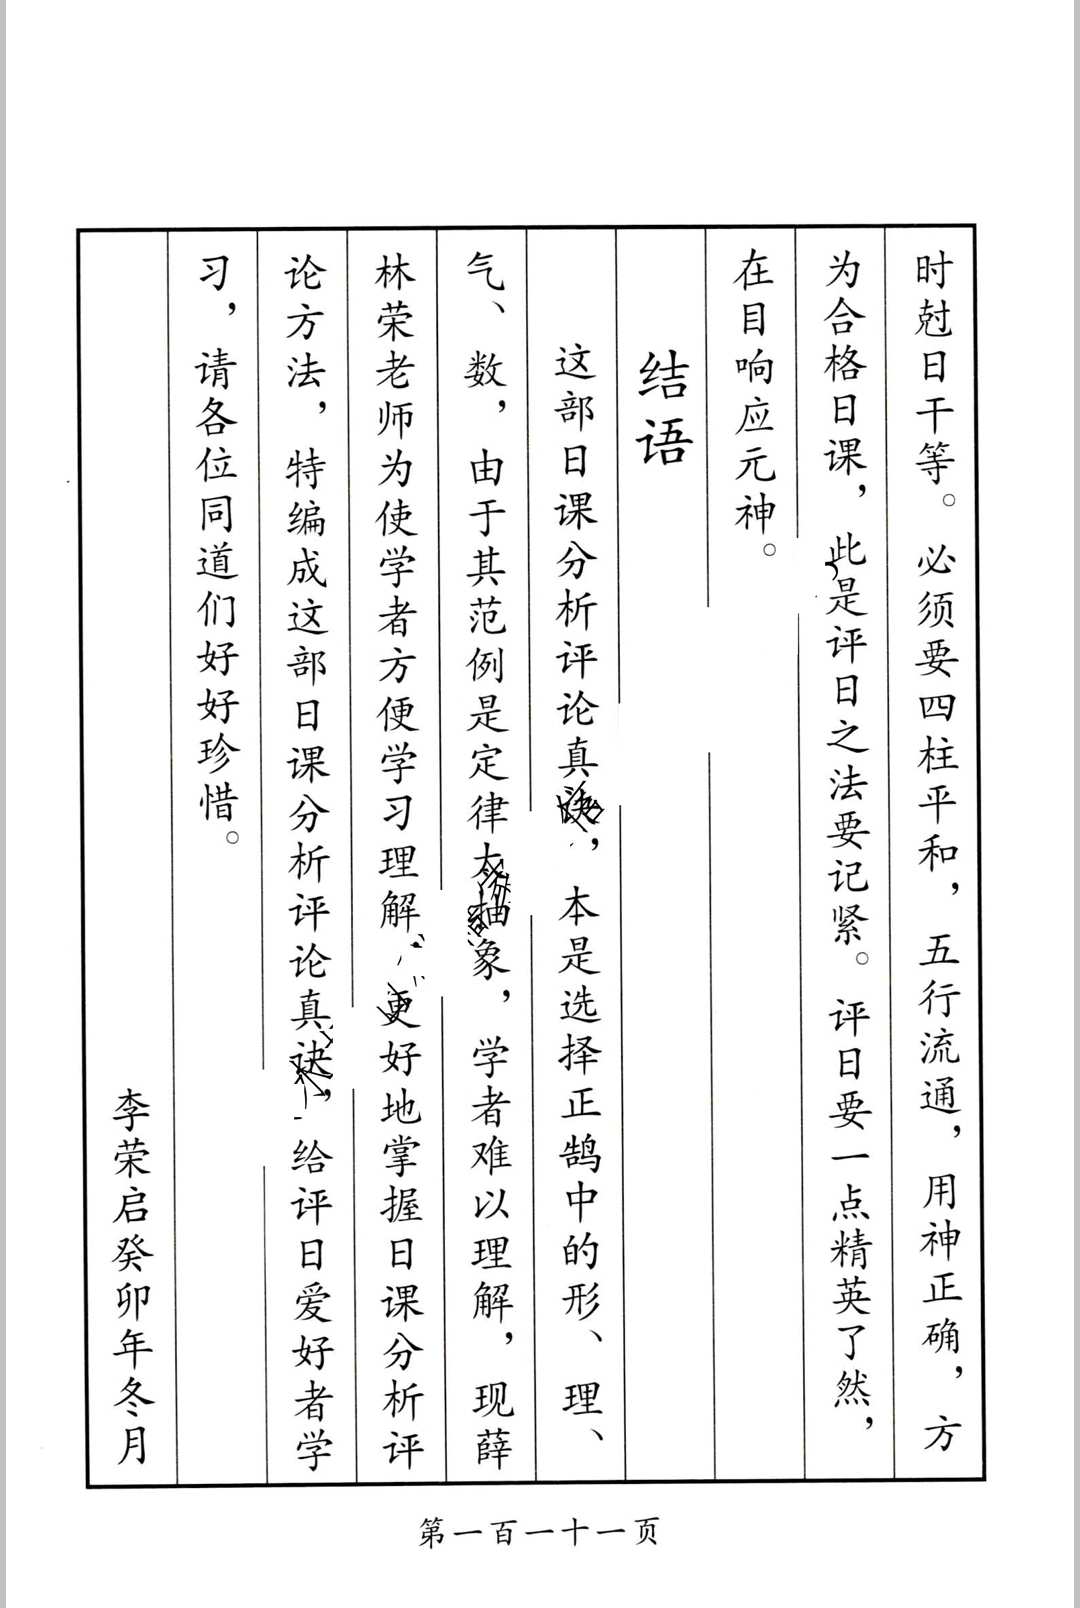 时尅日干等。必须要四柱平和，五行流通，用神正确，方
为合格日课，此是评日之法要记紧。评日要一点精英了然，
在目响应元神。
结语
这部日课分析评论真诀，本是选择正鹄中的形、理、
气、数，由于其范例是定律太抽象，学者难以理解，现薛
林荣老师为使学者方便学习理解，更好地掌握日课分析评
论方法，特编成这部日课分析评论真诀，给评日爱好者学
习，请各位同道们好好珍惜。
李荣启癸卯年冬月
第一百一十一页